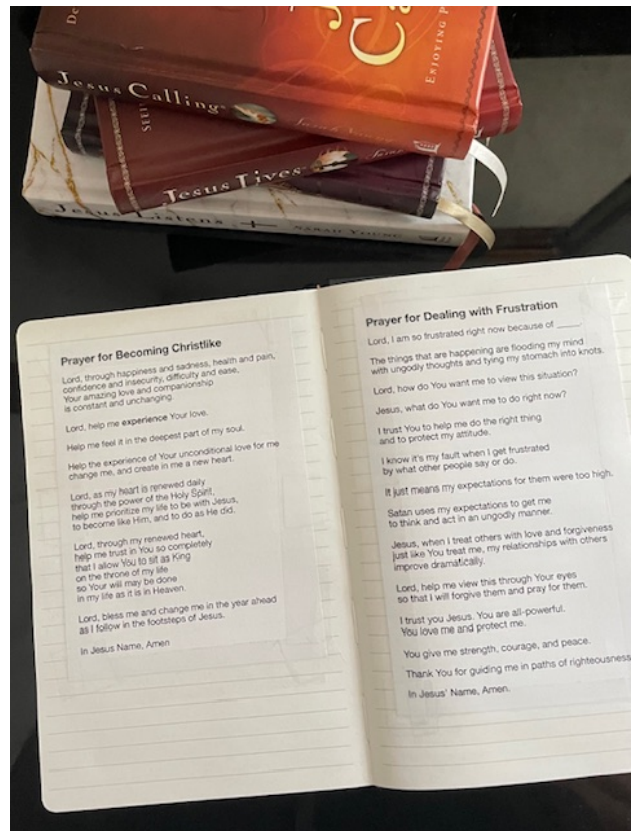 ENJOYING P
Jesus Calling
Jesus Lives
Jesus Listens
SARAH YOUNG
Prayer for Becoming Christlike
Lord, through happiness and sadness, health and pain,
confidence and insecurity, difficulty and ease,
Your amazing love and companionship
is constant and unchanging.
Lord, help me experience Your love.
Help me feel it in the deepest part of my soul.
Help the experience of Your unconditional love for me
change me, and create in me a new heart.
Lord, as my heart is renewed daily
through the power of the Holy Spirit,
help me prioritize my life to be with Jesus,
to become like Him, and to do as He did.
Lord, through my renewed heart,
help me trust in You so completely
that I allow You to sit as King
on the throne of my life
so Your will may be done
in my life as it is in Heaven.
Lord, bless me and change me in the year ahead
as I follow in the footsteps of Jesus.
In Jesus Name, Amen
Prayer for Dealing with Frustration
Lord, I am so frustrated right now because of _____.
The things that are happening are flooding my mind
with ungodly thoughts and tying my stomach into knots.
Lord, how do You want me to view this situation?
Jesus, what do You want me to do right now?
I trust You to help me do the right thing
and to protect my attitude.
I know it's my fault when I get frustrated
by what other people say or do.
It just means my expectations for them were too high.
Satan uses my expectations to get me
to think and act in an ungodly manner.
Jesus, when I treat others with love and forgiveness
just like You treat me, my relationships with others
improve dramatically.
Lord, help me view this through Your eyes
so that I will forgive them and pray for them.
I trust you Jesus. You are all-powerful.
You love me and protect me.
You give me strength, courage, and peace.
Thank You for guiding me in paths of righteousness
In Jesus' Name, Amen.